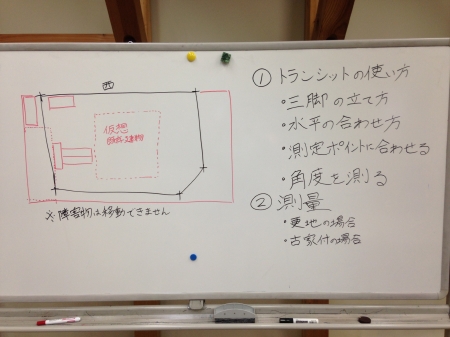 西
仮想
既存建物
※障害物は移動できません
① トランシットの使い方
・三脚の立て方
・水平の合わせ方
・測定ポイントに合わせる
・角度を測る
② 測量
・更地の場合
・古家付の場合